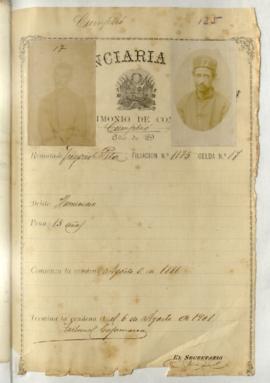 Cumplió
125
17
NCIARIA
IMONIO DE CO
Cumplió
Remitido Gregorio FILIACION N.° 1175 CELDA N.° 17
Delito Homicidio
Pena 15 años
Comienza la condena Agosto 6 de 1886
Termina la condena el 6 de Agosto de 1901
Tribunal Cajamarca
EL SECRETARIO